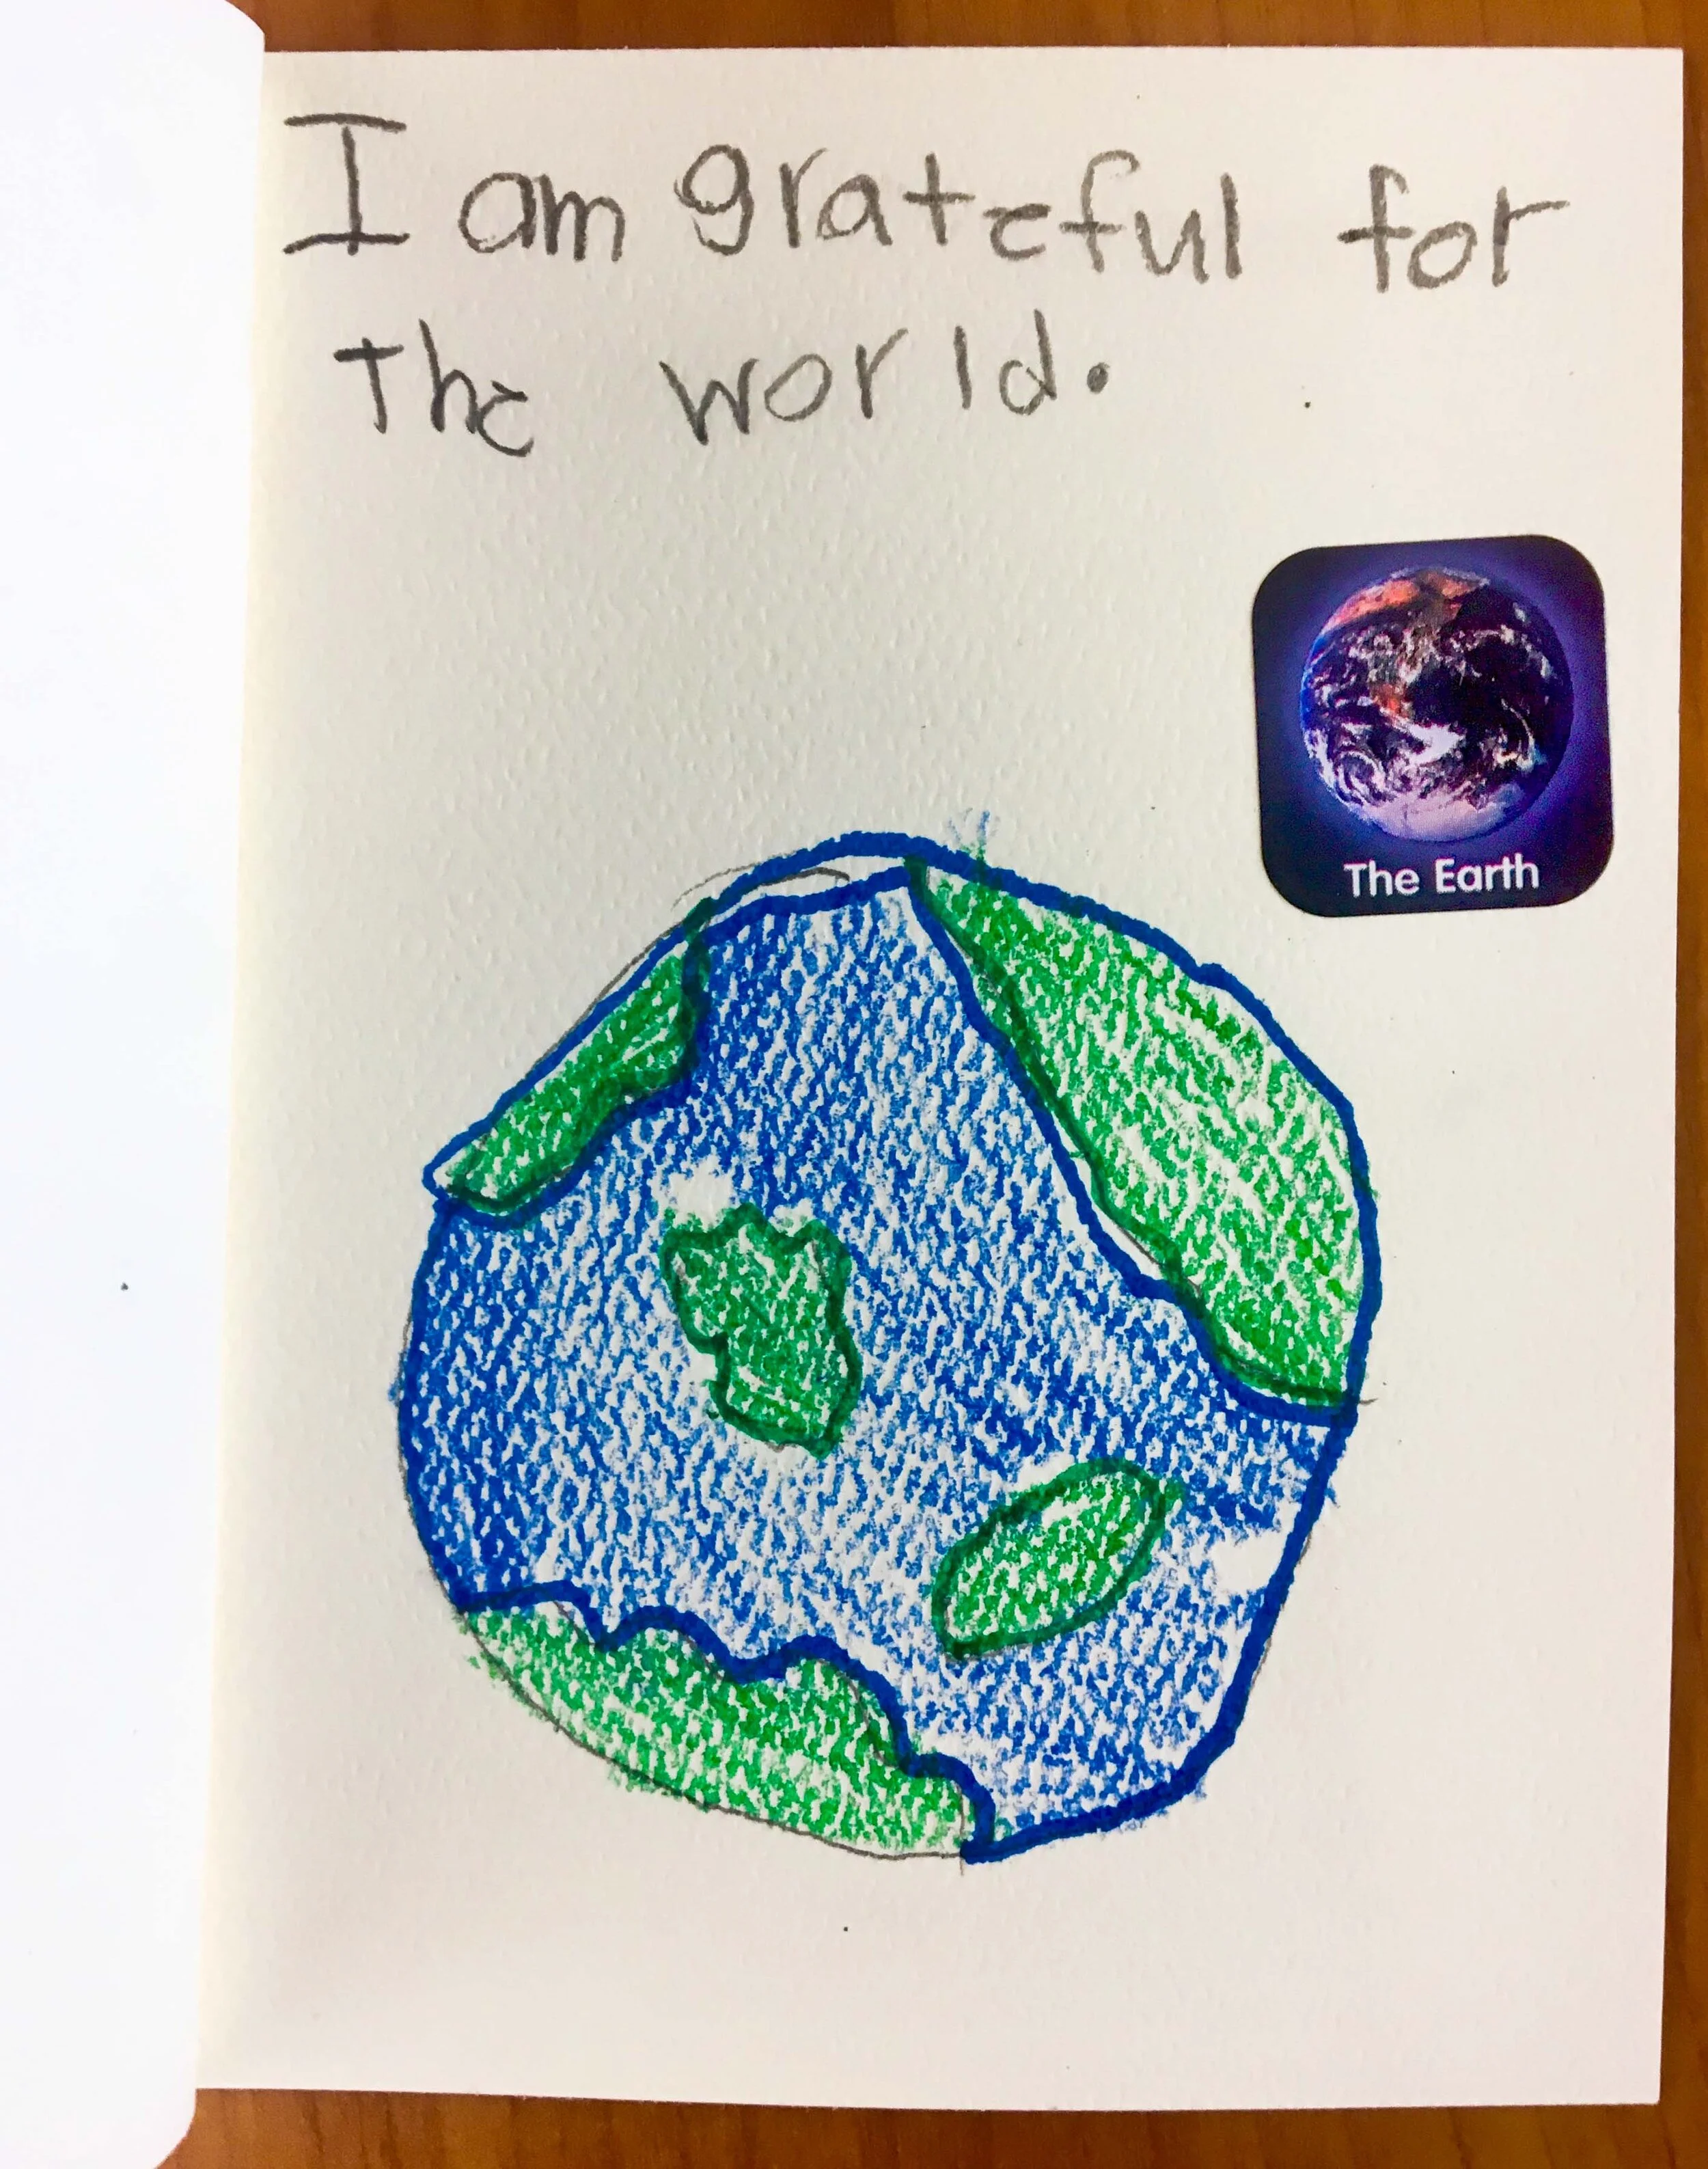 I am grateful for
the world.
The Earth